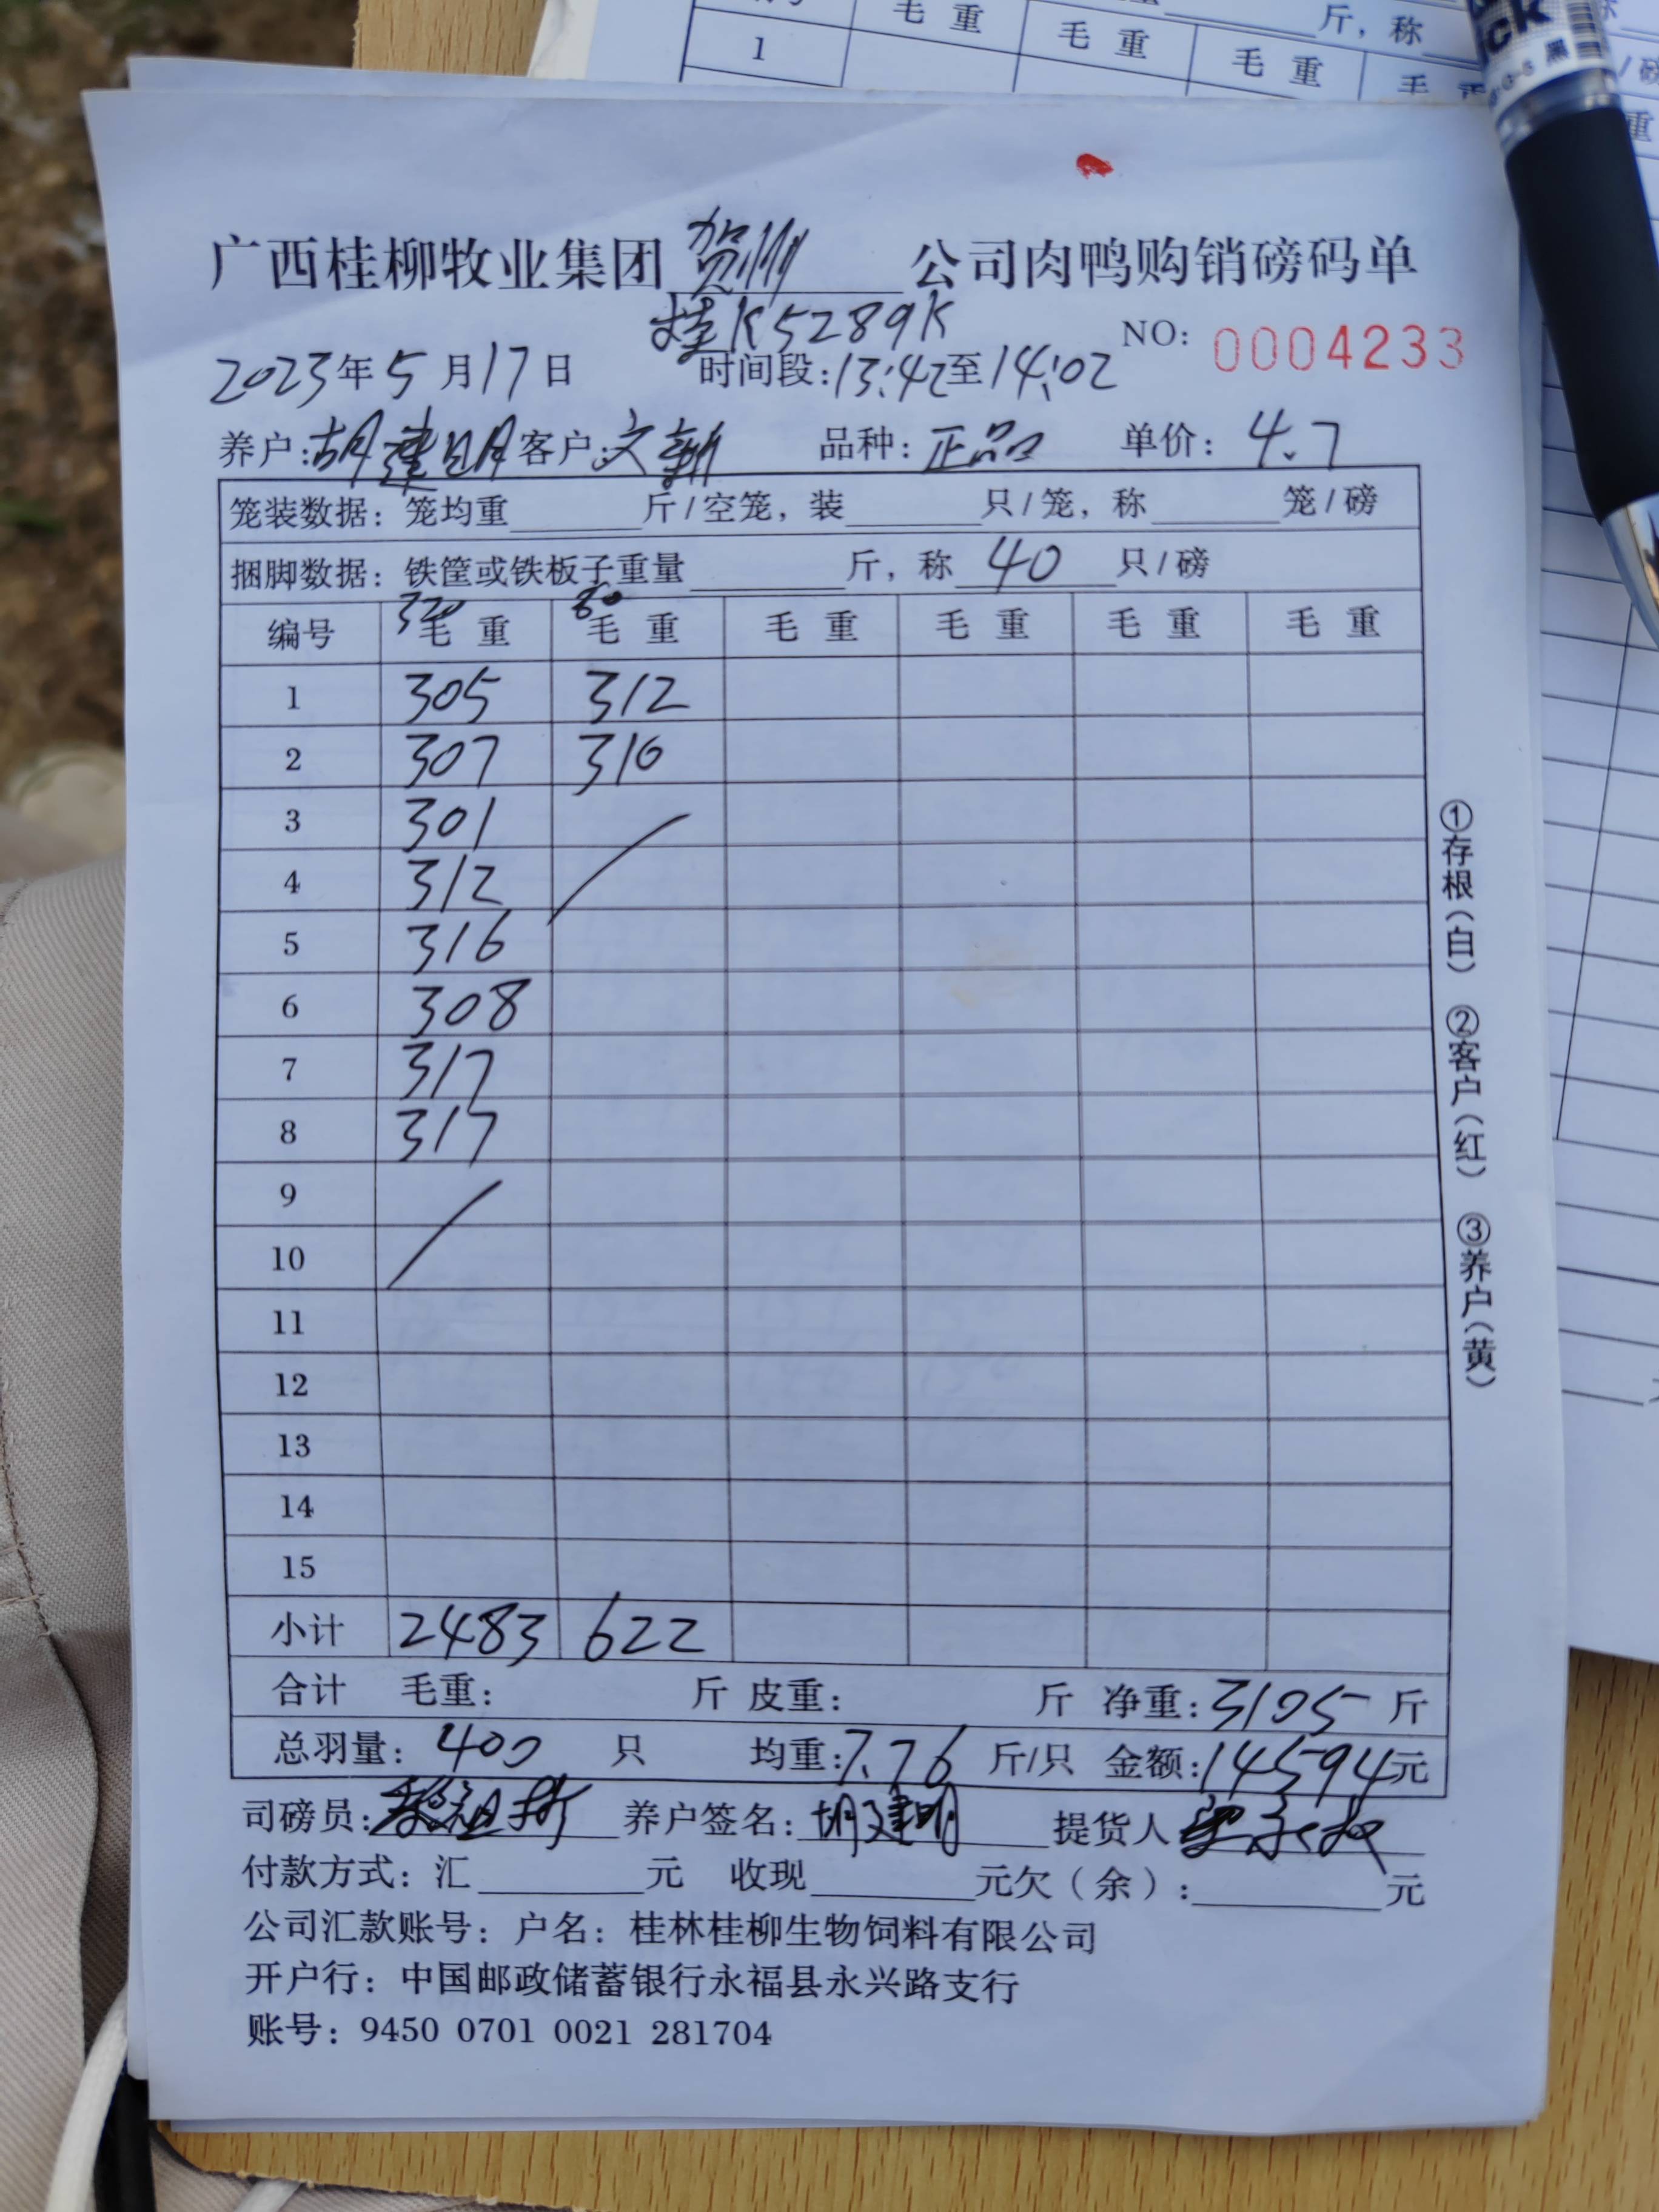 斤，称
毛 重 毛 重 毛 重
1
广西桂柳牧业集团贺州公司肉鸭购销磅码单
桂K5289K
NO: 0004233
2023年5月17日 时间段:13:42至14:02
养户:胡建明 客户:文新 品种:正品 单价:4.7
笼装数据：笼均重 斤/空笼，装 只/笼，称 笼/磅
捆脚数据：铁筐或铁板子重量 斤，称 40 只/磅
320 80
编号 毛 重 毛 重 毛 重 毛 重 毛 重 毛 重
1 305 312
2 307 310
3 301
4 312
5 316
6 308
7 317
8 317
9
10
11
12
13
14
15
小计 2483 622
合计 毛重： 斤 皮重： 斤 净重：3105 斤
总羽量：400 只 均重:7.76 斤/只 金额:14594元
司磅员: 养户签名:胡建明 提货人
付款方式：汇 元 收现 元欠（余）: 元
公司汇款账号：户名：桂林桂柳生物饲料有限公司
开户行：中国邮政储蓄银行永福县永兴路支行
账号：9450 0701 0021 281704
①存根（白） ②客户（红） ③养户（黄）